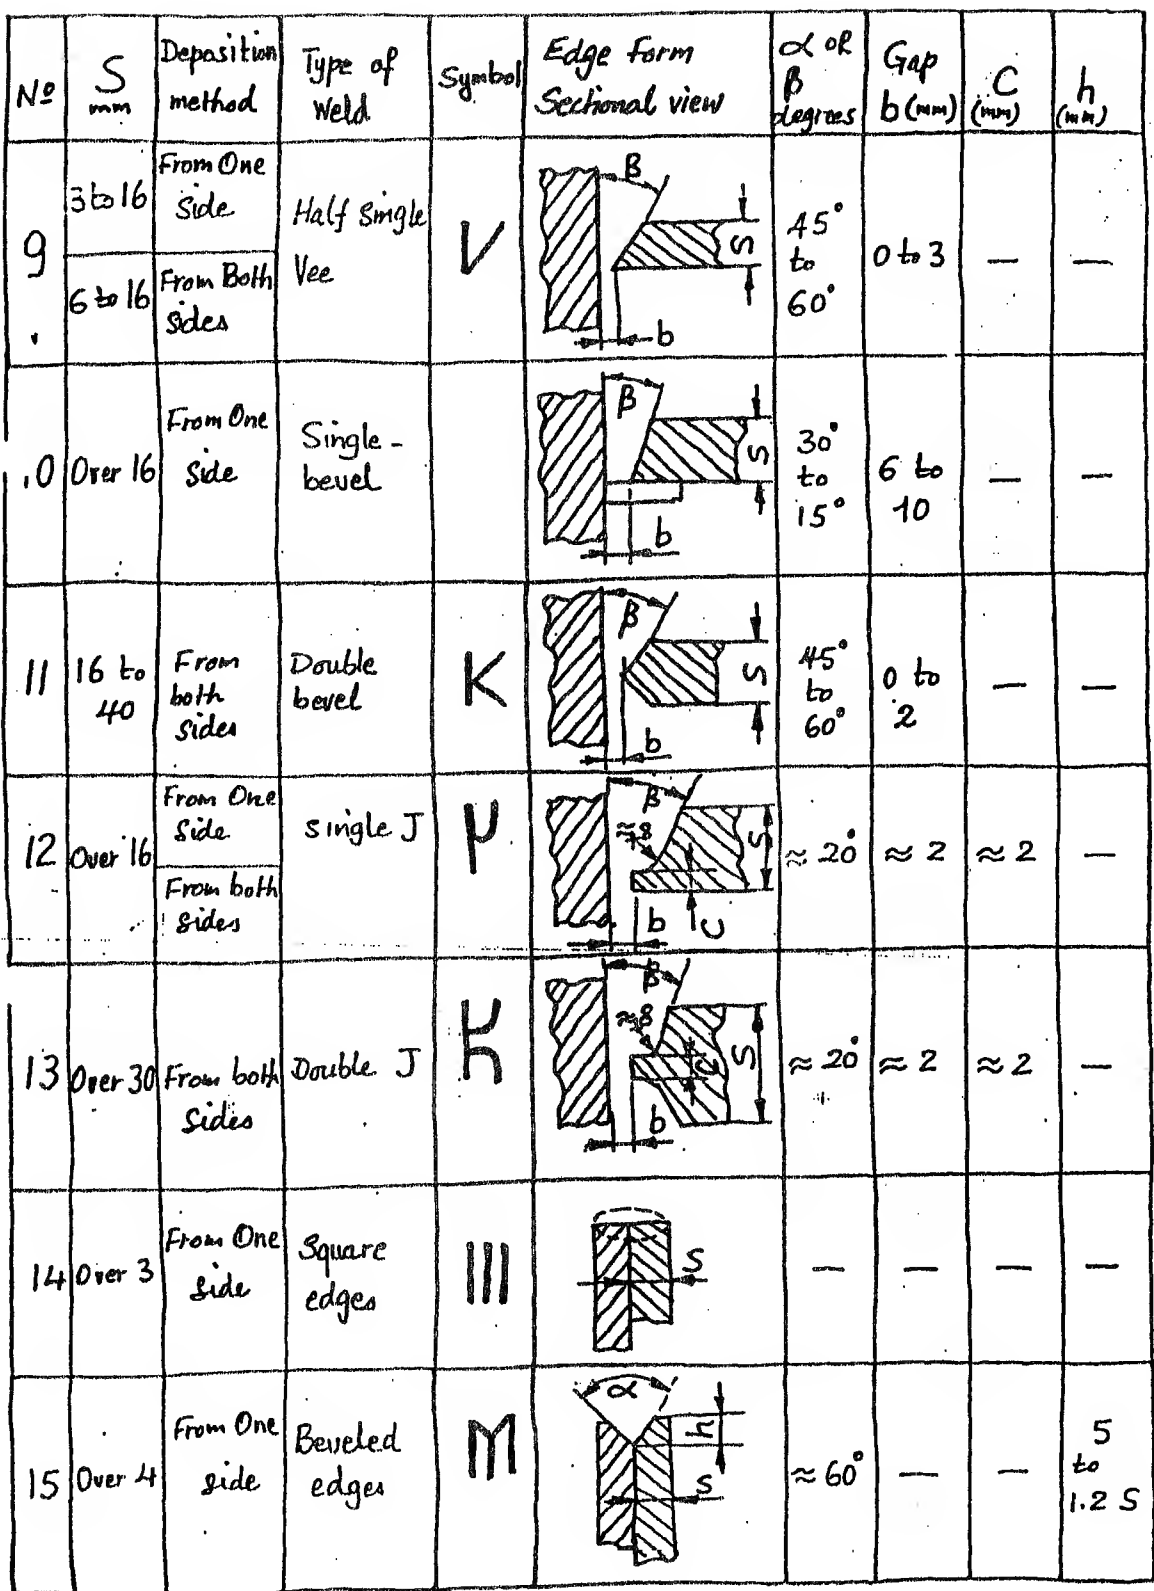 Nº
S
mm
Deposition
method
Type of
Weld
Symbol
Edge form
Sectional view
α OR
β
degrees
Gap
b (mm)
C
(mm)
h
(mm)
9
3 to 16
From One
Side
6 to 16
From Both
Sides
Half Single
Vee
V
β
S
b
45°
to
60°
0 to 3
—
—
10
Over 16
From One
Side
Single -
bevel
β
S
b
30°
to
15°
6 to
10
—
—
11
16 to
40
From
both
Sides
Double
bevel
K
β
S
b
45°
to
60°
0 to
2
—
—
12
Over 16
From One
Side
From both
Sides
Single J
β
≈8
S
b
C
≈ 20°
≈ 2
≈ 2
—
13
Over 30
From both
Sides
Double J
β
≈8
C
S
b
≈ 20°
≈ 2
≈ 2
—
14
Over 3
From One
Side
Square
edges
|||
S
—
—
—
—
15
Over 4
From One
side
Beveled
edges
M
α
h
S
≈ 60°
—
—
5
to
1.2 S